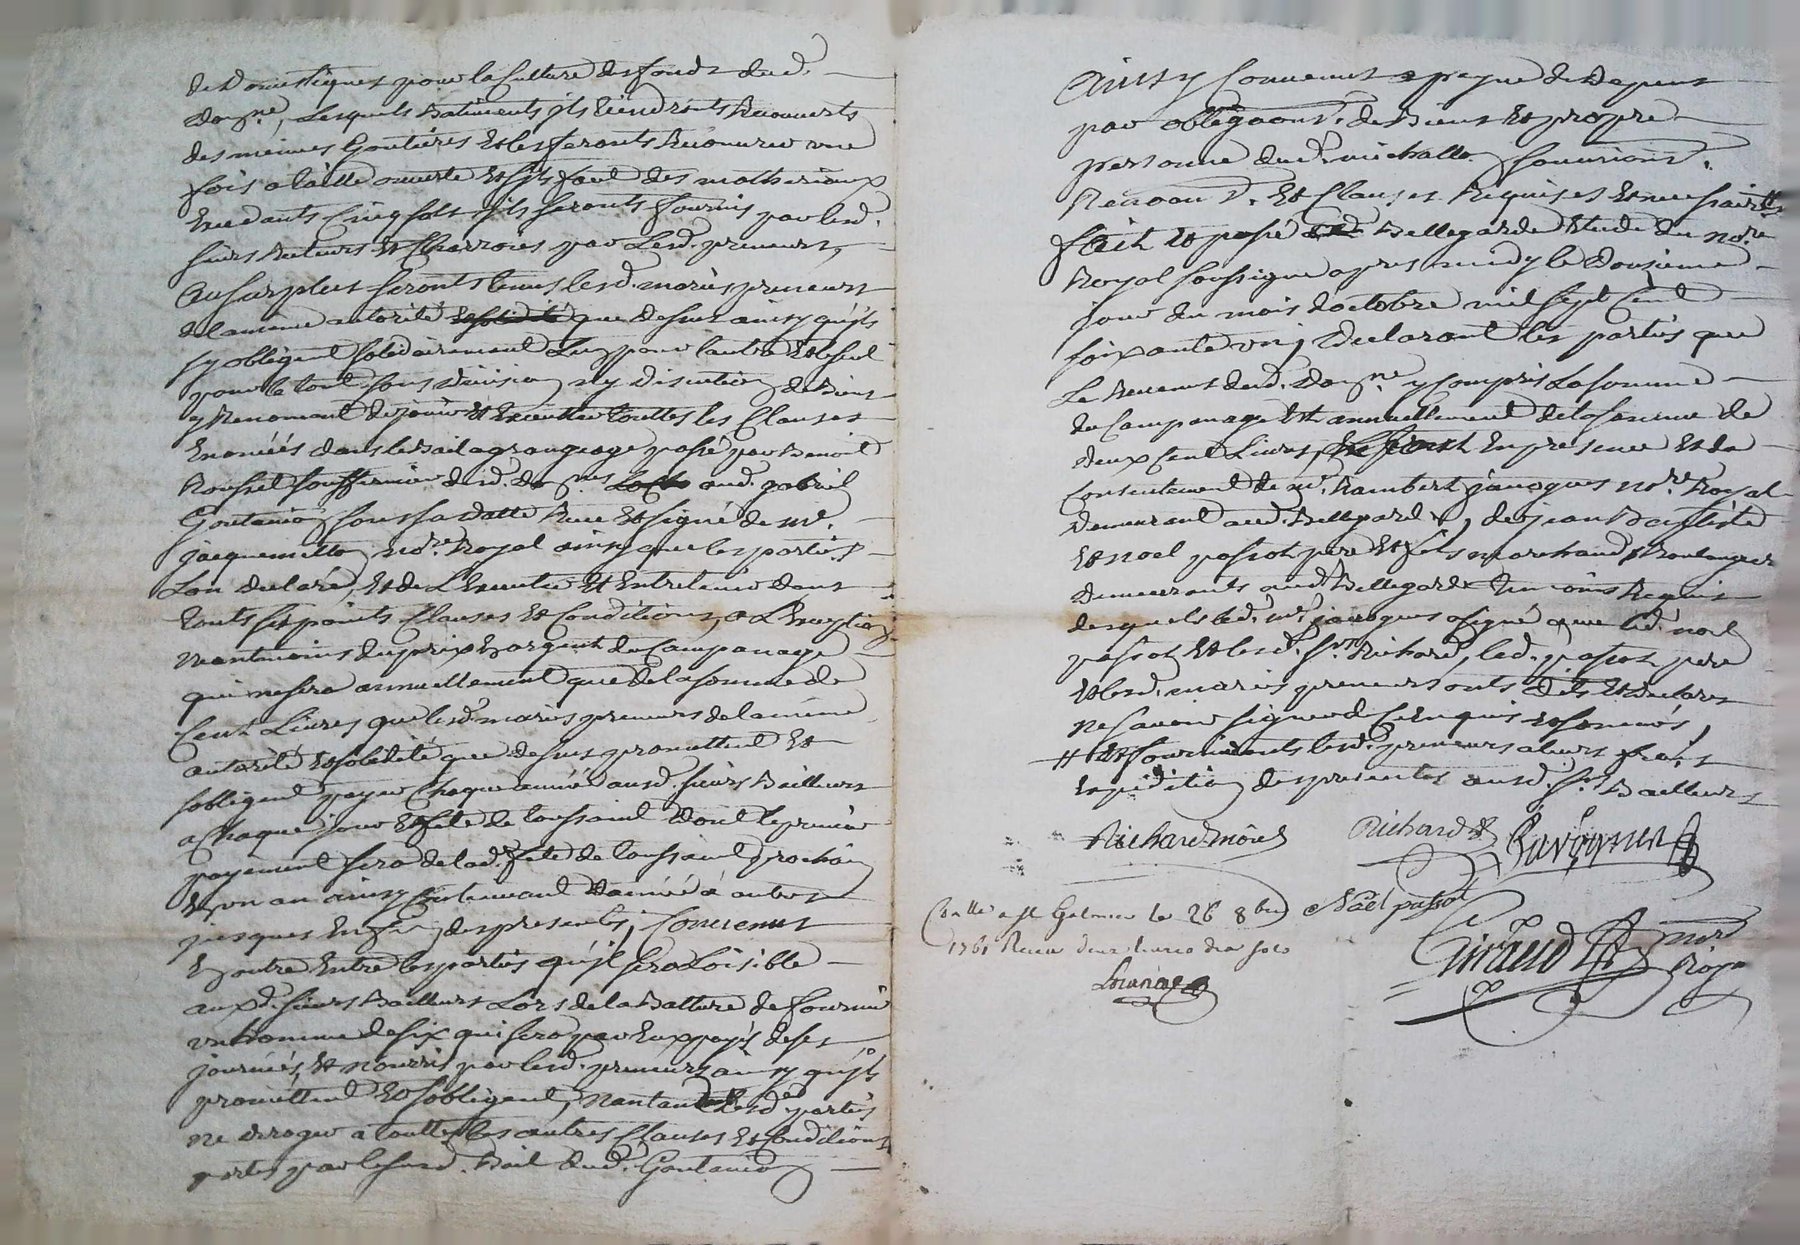 de domestiques pour la Culture des fonds dud.
dom.ne, Lesquels Batiments jls tiendronts Recouverts
des meines Goutières et les feronts Recouvrir une
fois a taille ouverte et s'jls faut des matheriaux
Excedants Cinq sols jls seronts fournis par lesd.
sieurs Bailleurs et Charroiés par Lesd. preneurs,
Au surplus seronts tenus lesd. mariés preneurs
de la meme autorité que dessus ainsy qu'jls
s'y obligent solidairement L'un pour l'autre et le seul
pour le tout sans division ny discution de Biens
y Renoncant de jouir et Executter touttes les Clauses
Enoncéés dans le Bail a grangeage passé par Benoit
Rousset souffermier desd. dom.nes aud. gabriel
Goutanier sous sa datte Recu et signé de me.
jacquemette no.re Royal ainsy que les parties
L'on declaré, et de L'Executer et Entretenir dans
touts ses points Clauses et Conditions, a L'Exception
neantmoins du prix En argent du Campanage
qui ne sera annuellement que de la somme de
Cent Livres que lesd. mariés preneurs de la meme
autorité et solidité que dessus promettent et
s'obligent payer Chaque année ausd. sieurs Bailleurs
a Chaque jour et fete de toussaint dont le premier
payement sera de lad. fete de toussaint prochain
En un an ainsy Continuant d'année a autres
jusques En fin des presentes, Convenus
En outre Entre les parties qu'jl sera Loisible
auxd. sieurs Bailleurs Lors de la Batture de fournir
un homme de six qui sera par Eux payé de ses
journéés, et nourris par lesd. preneurs ainsy qu'jls
promettent et s'obligent, Lesd. parties
ne deroger a touttes les autres Clauses et Conditions
portés par le susd. Bail dud. Goutanier
Ainsy Convenus a peyne de depens
par obligaons. de Biens et propre
personne dud. michalle soumissions.
Renoaons. et Clauses Requises et necessaires
fait et passé a Bellegarde Etude du no.re
Royal soussigné apres midy le douzieme
jour du mois d'octobre mil sept Cent
soixante un, declarant les parties que
Le Revenus dud. dom.ne y Compris La somme
de Campanage Est annuellement de la somme de
deux Cent Livres, En presence et du
Consentement de me. Rambert javogues no.re Royal
demeurant aud. Bellegarde, de jean Baptiste
et noel passot pere et fils marchands Boulangers
demeurants aud. Bellegarde temoins Requis
desquels led. me. javogues a signé avec led. noel
passot et lesd. srs. Richard, led. passot pere
et lesd. mariés preneurs onts dits et declarés
ne savoir signer de Ce Enquis et sommés,
# et fourniront lesd. preneurs a leurs frais
Expedition des presentes ausd. srs. Bailleurs
Richard moné Richard Javogues
Noël passot
Con.llé a st Galmier le 26 8bre
1761 Recu deux livres dix sols
Giraud nore
Roya